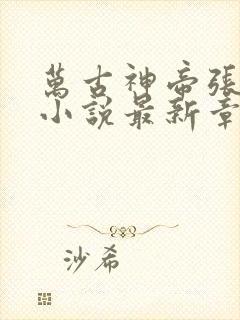 萬古神帝張
小說最新章
沙希